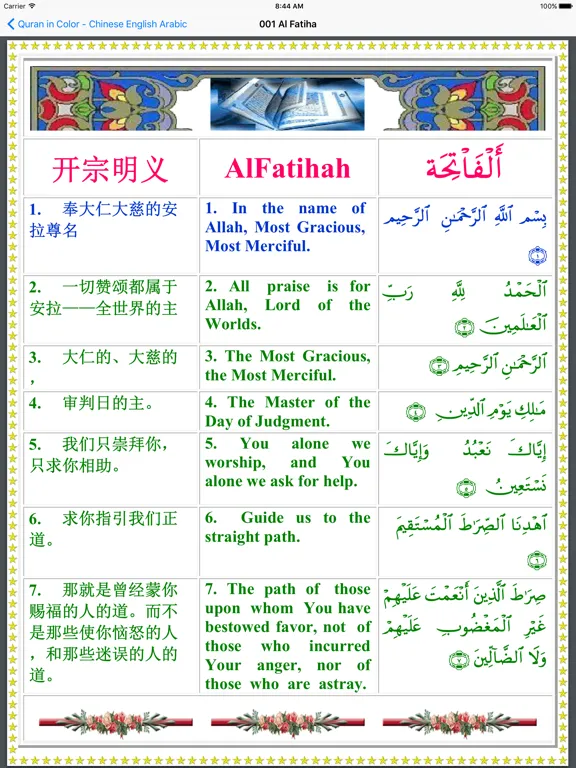 Carrier 8:44 AM 100%
Quran in Color - Chinese English Arabic 001 Al Fatiha
开宗明义
AlFatihah
أَلْفَاتِحَة
1. 奉大仁大慈的安
拉尊名
1. In the name of
Allah, Most Gracious,
Most Merciful.
بِسْمِ ٱللَّهِ ٱلرَّحْمَـٰنِ ٱلرَّحِيمِ
﴿١﴾
2. 一切赞颂都属于
安拉——全世界的主
2. All praise is for
Allah, Lord of the
Worlds.
ٱلْحَمْدُ لِلَّهِ رَبِّ
ٱلْعَـٰلَمِينَ ﴿٢﴾
3. 大仁的、大慈的
，
3. The Most Gracious,
the Most Merciful.
ٱلرَّحْمَـٰنِ ٱلرَّحِيمِ ﴿٣﴾
4. 审判日的主。
4. The Master of the
Day of Judgment.
مَـٰلِكِ يَوْمِ ٱلدِّينِ ﴿٤﴾
5. 我们只崇拜你，
只求你相助。
5. You alone we
worship, and You
alone we ask for help.
إِيَّاكَ نَعْبُدُ وَإِيَّاكَ
نَسْتَعِينُ ﴿٥﴾
6. 求你指引我们正
道。
6. Guide us to the
straight path.
ٱهْدِنَا ٱلصِّرَٰطَ ٱلْمُسْتَقِيمَ
﴿٦﴾
7. 那就是曾经蒙你
赐福的人的道。而不
是那些使你恼怒的人
，和那些迷误的人的
道。
7. The path of those
upon whom You have
bestowed favor, not of
those who incurred
Your anger, nor of
those who are astray.
صِرَٰطَ ٱلَّذِينَ أَنْعَمْتَ عَلَيْهِمْ
غَيْرِ ٱلْمَغْضُوبِ عَلَيْهِمْ
وَلَا ٱلضَّآلِّينَ ﴿٧﴾